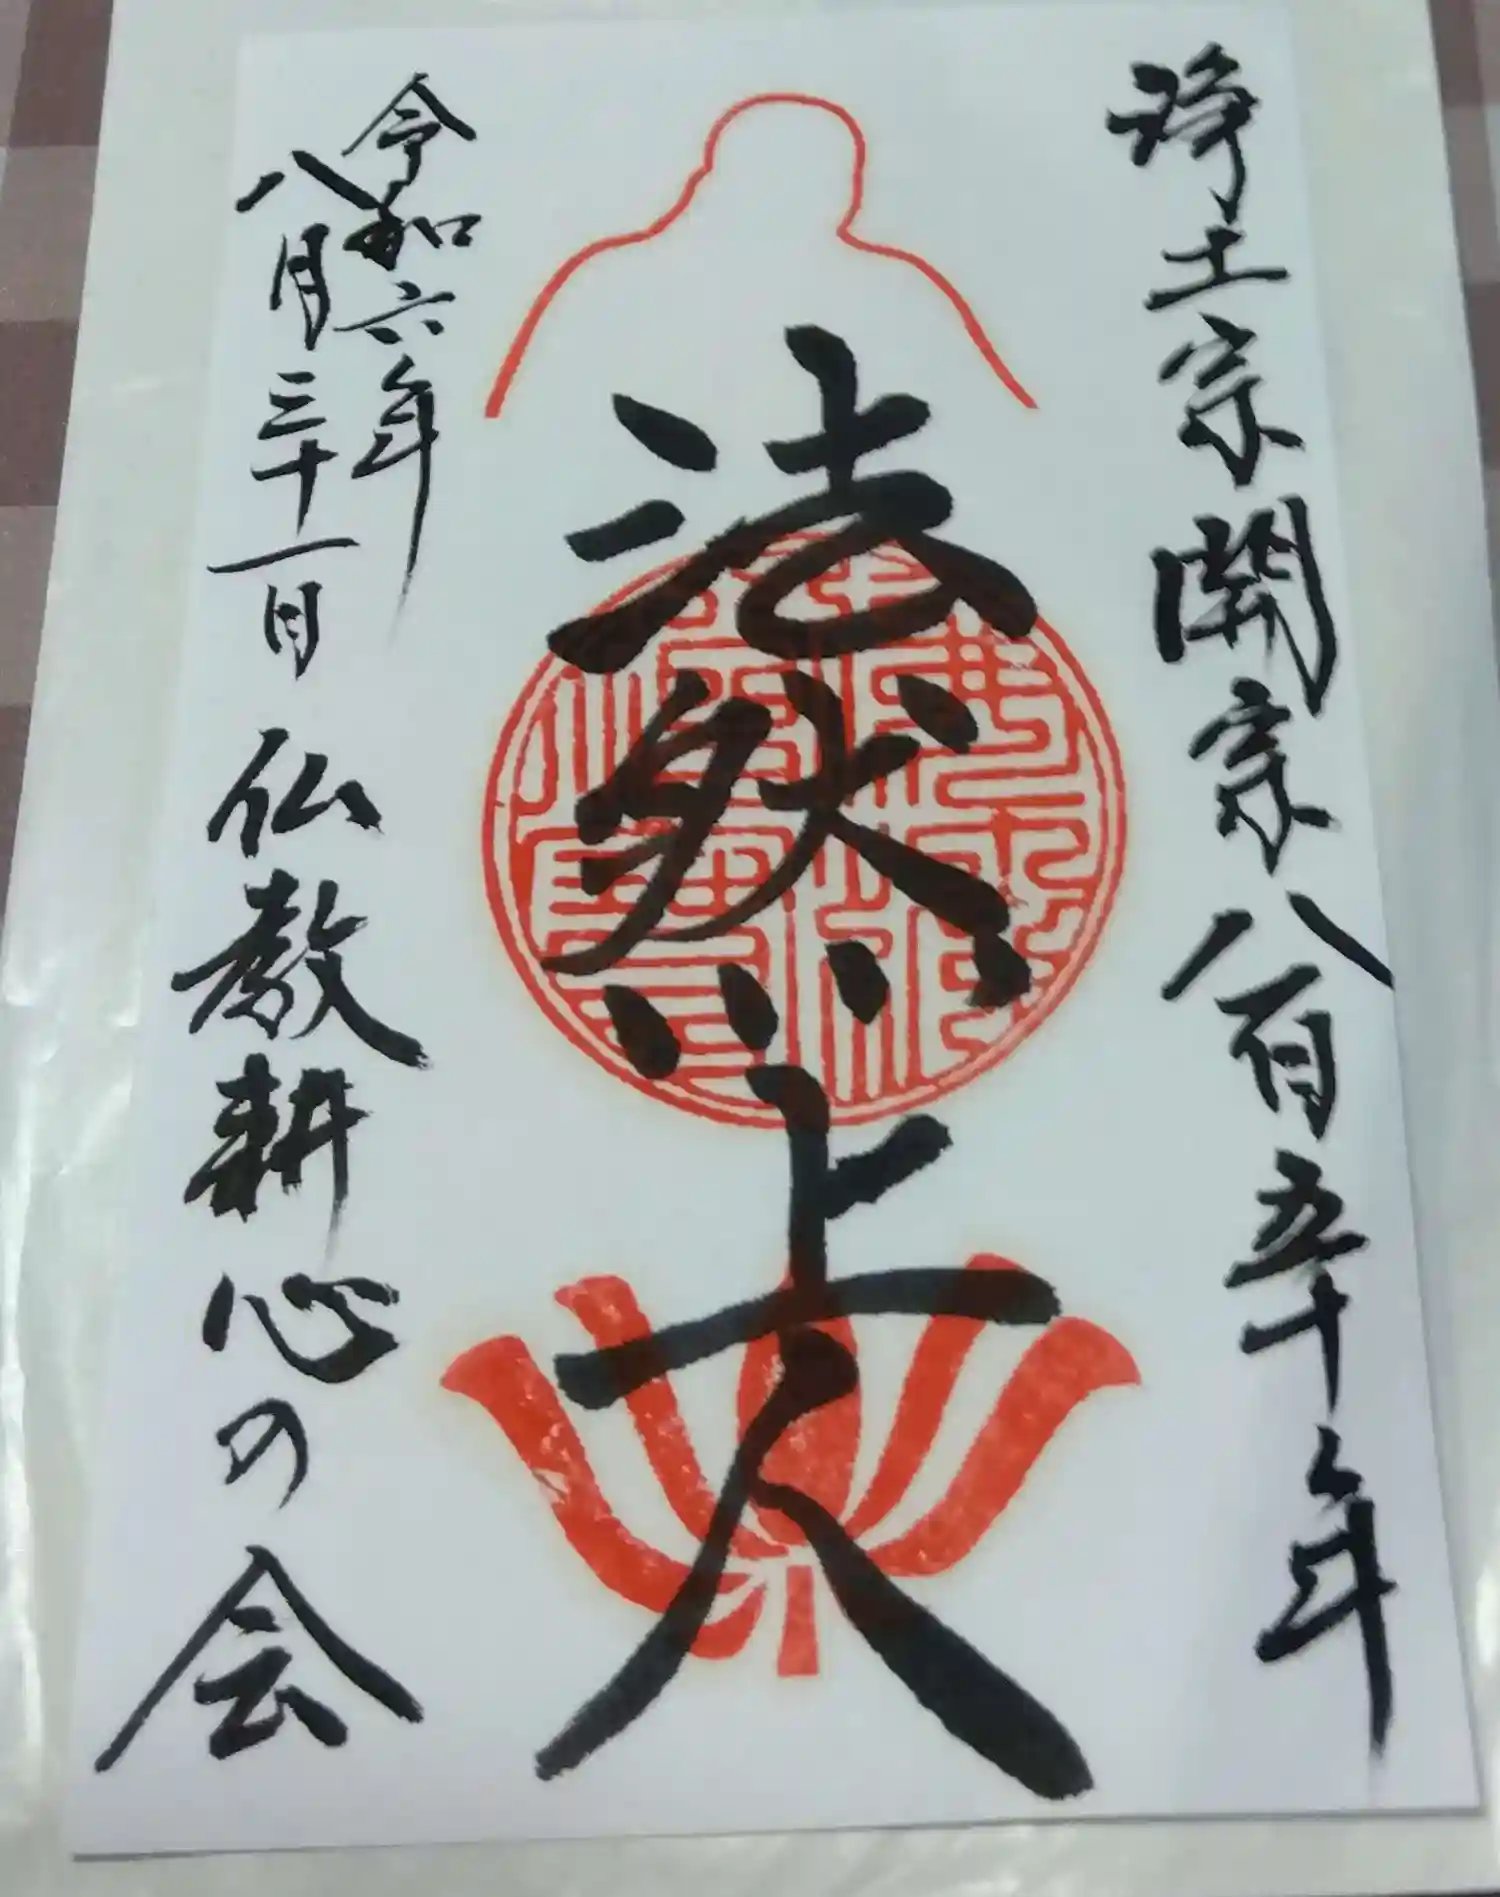 浄土宗開宗八百五十年
法然上人
令和六年
八月三十一日
仏教耕心の会